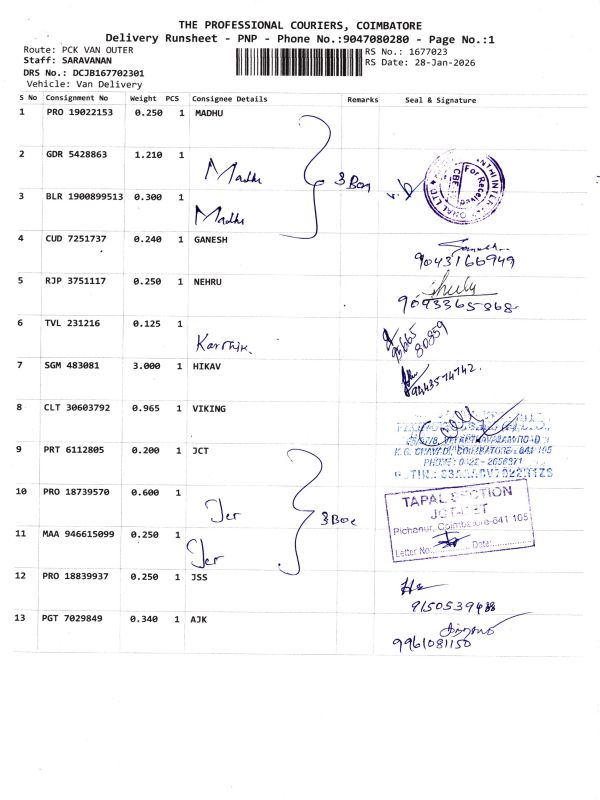 THE PROFESSIONAL COURIERS, COIMBATORE
Delivery Runsheet - PNP - Phone No.:9047080280 - Page No.:1
Route: PCK VAN OUTER
RS No.: 1677023
Staff: SARAVANAN
RS Date: 28-Jan-2026
DRS No.: DCJB167702301
Vehicle: Van Delivery
S No Consignment No Weight PCS Consignee Details Remarks Seal & Signature
1 PRO 19022153 0.250 1 MADHU
2 GDR 5428863 1.210 1 Madhu
3 BLR 1900899513 0.300 1 Madhu
4 CUD 7251737 0.240 1 GANESH
9043166949
5 RJP 3751117 0.250 1 NEHRU
9093365868
6 TVL 231216 0.125 1 Karthik.
80859
7 SGM 483081 3.000 1 HIKAV
9443574742.
8 CLT 30603792 0.965 1 VIKING
K.G. CHAVADI, COIMBATORE - 641 105
PHONE: 0422 - 2656371
9 PRT 6112805 0.200 1 JCT
10 PRO 18739570 0.600 1
TAPAL SECTION
Pichanur, Coimbatore-641 105
Letter No: Date:
11 MAA 946615099 0.250 1
12 PRO 18839937 0.250 1 JSS
13 PGT 7029849 0.340 1 AJK
9961081150